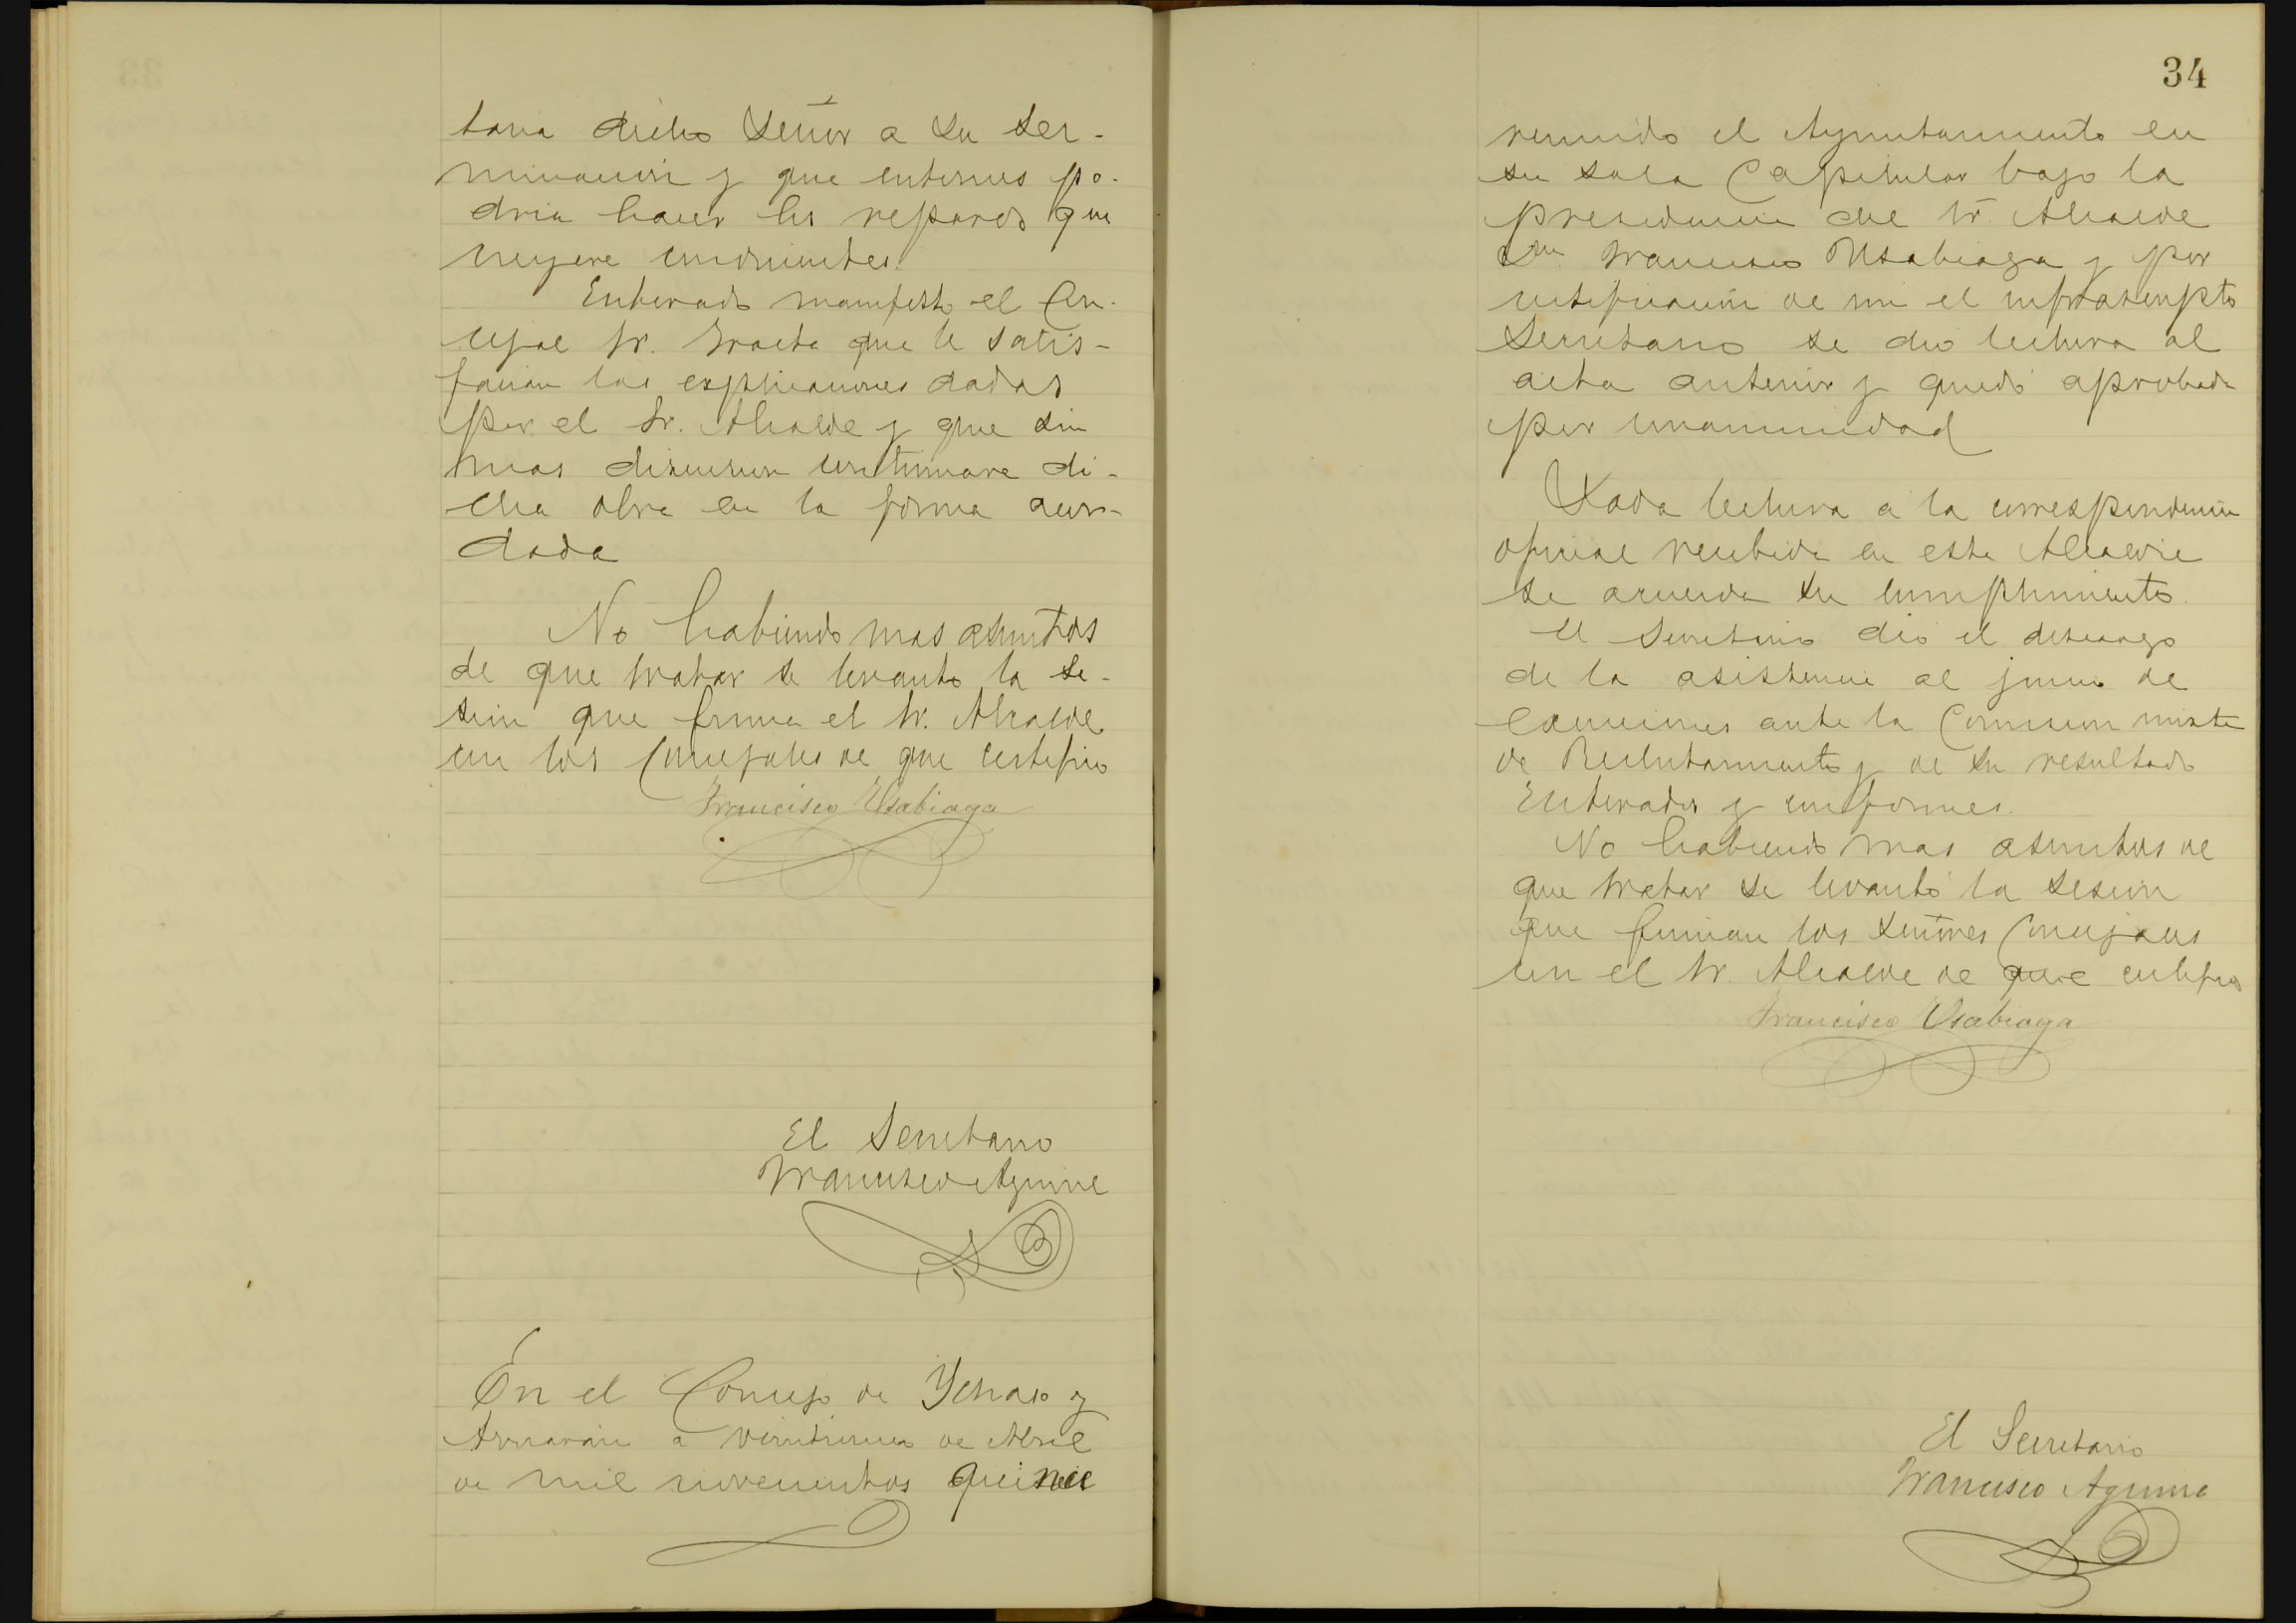 taria dicho Señor a su ter-
minacion y que entonces po-
dria hacer los reparos que
creyere convenientes.
Enterado manifestó el Con-
cejal Sr. Iraeta que le satis-
facian las explicaciones dadas
por el Sr. Alcalde y que sin
mas discusion continuara di-
cha obra en la forma acor-
dada
No habiendo mas asuntos
de que tratar se levanto la se-
sion que firma el Sr. Alcalde
con los Concejales de que certifico
Francisco Usabiaga
El Secretario
Francisco Aguirre
En el Concejo de Ychaso y
Arriarán a veinticinco de Abril
de mil novecientos quince
34
reunido el Ayuntamiento en
su sala Capitular bajo la
presidencia del Sr. Alcalde
Dn Francisco Usabiaga y por
certificación de mi el infrascripto
Secretario se dio lectura al
acta anterior y quedó aprobada
por unanimidad
Dada lectura a la correspondencia
oficial recibida en esta Alcaldia
se acuerda su cumplimiento.
El Secretario dió el descargo
de la asistencia al juicio de
exenciones ante la Comision mixta
de Reclutamiento y de su resultado
Enterados y conformes.
No habiendo mas asuntos de
que tratar se levantó la sesion
que firman los Señores Concejales
con el Sr. Alcalde de que certifico
Francisco Usabiaga
El Secretario
Francisco Aguirre